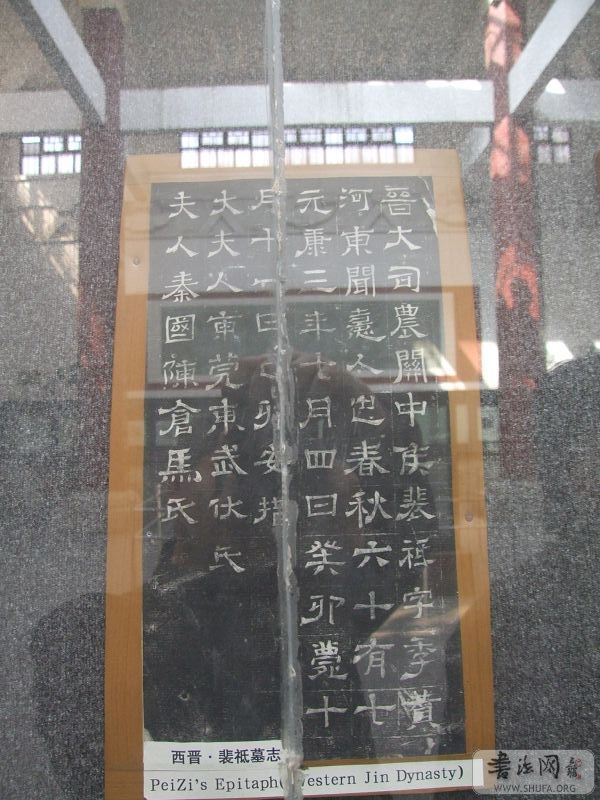 晉大司農關中侯裴祗字季贊
河東聞憙人也春秋六十有七
元康三年七月四日癸卯薨十
月十 日己卯安措
大夫人東莞東武伏氏
夫人秦國陳倉馬氏
西晋·裴祗墓志
PeiZi's Epitaph(Western Jin Dynasty)
书法网
WWW.SHUFA.ORG